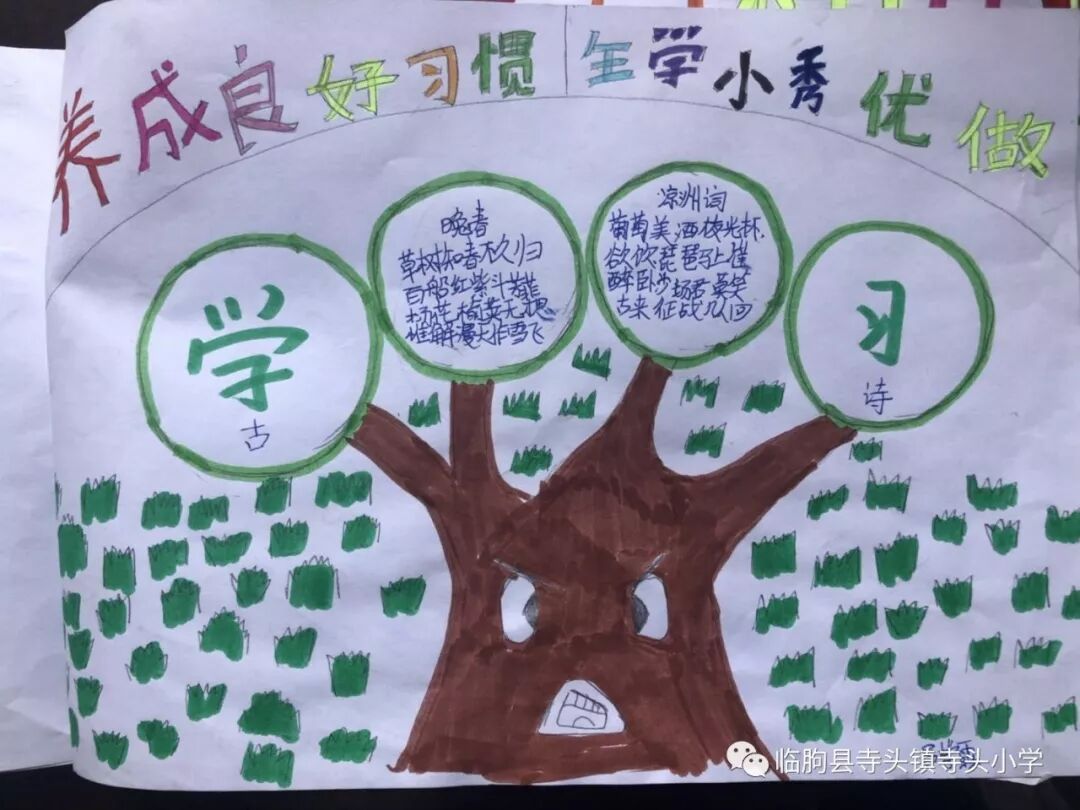 养成良好习惯
生学小秀优做
学
古
晚春
草树知春不久归
百船红紫斗芳菲
杨花榆荚无
惟解漫天作雪飞
凉州词
葡萄美酒夜光杯
欲饮琵琶马上催
醉卧沙场君莫笑
古来征战几人回
习
诗
临朐县寺头镇寺头小学